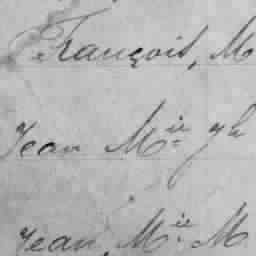 François, M
Jean M^ie yh
Jean, M^ie. M